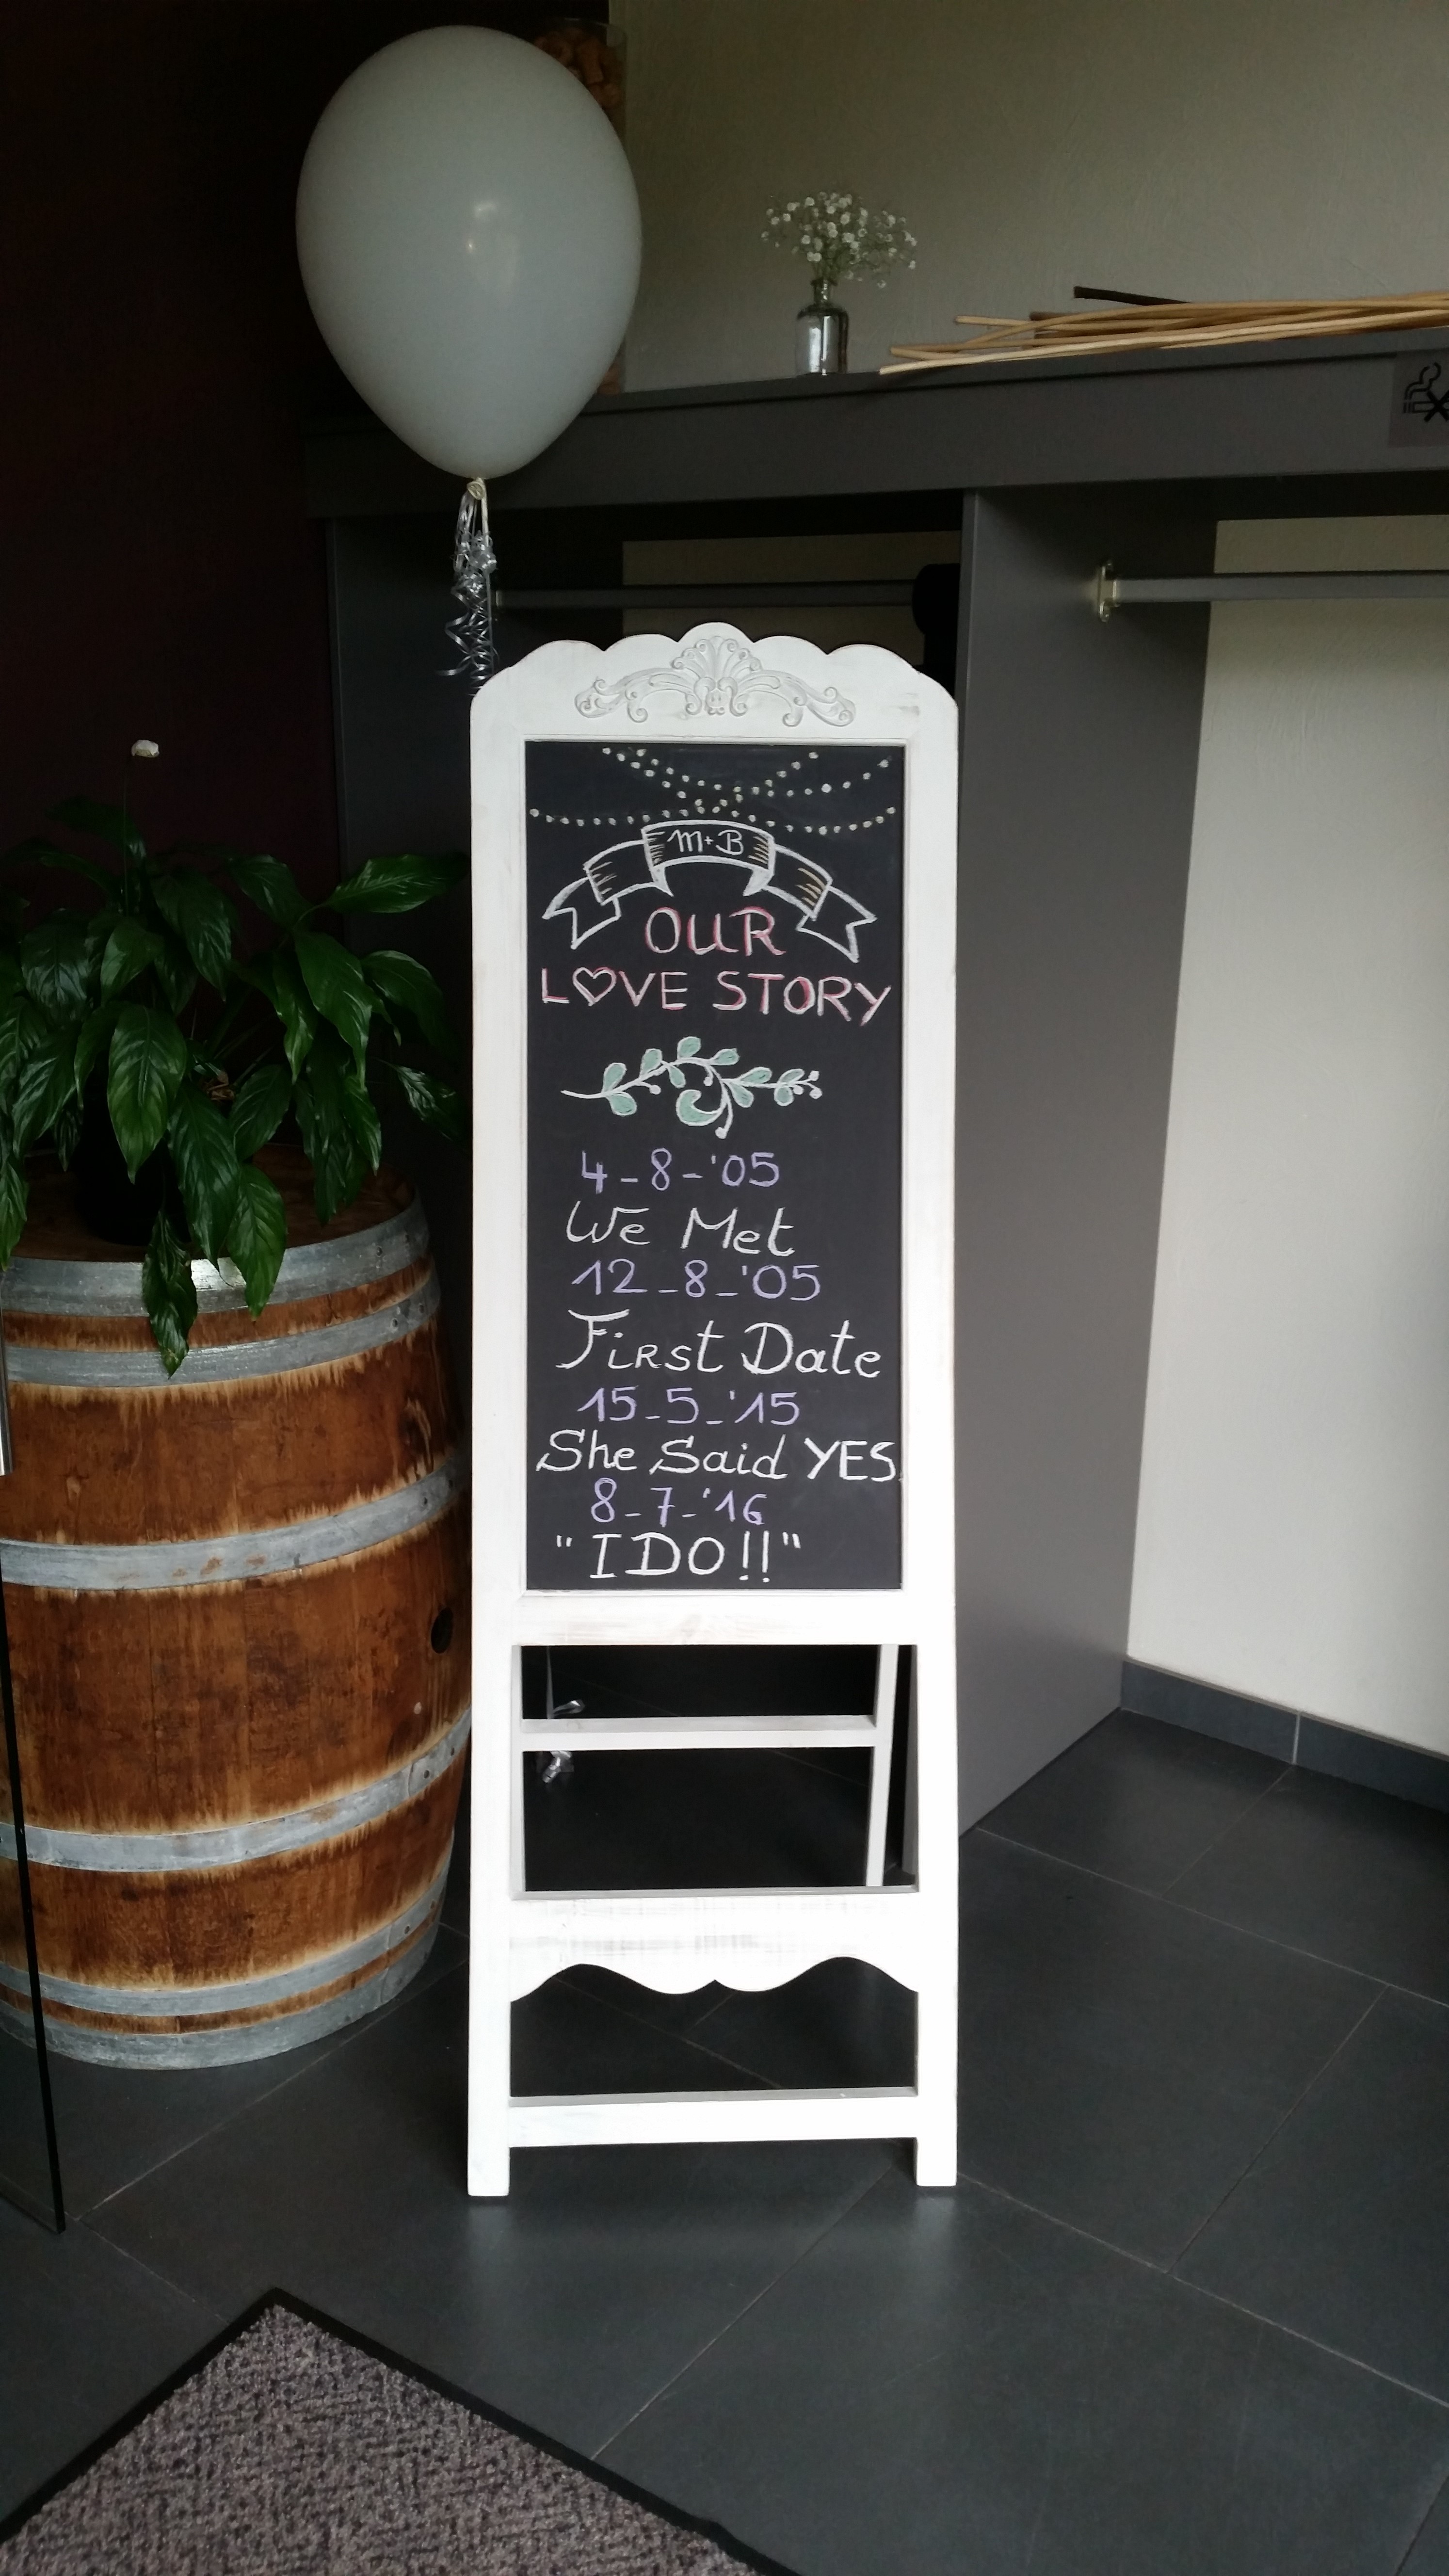 M+B
OUR
LOVE STORY
4-8-'05
We Met
12-8-'05
First Date
15-5-'15
She Said YES
8-7-'16
"I DO!!"